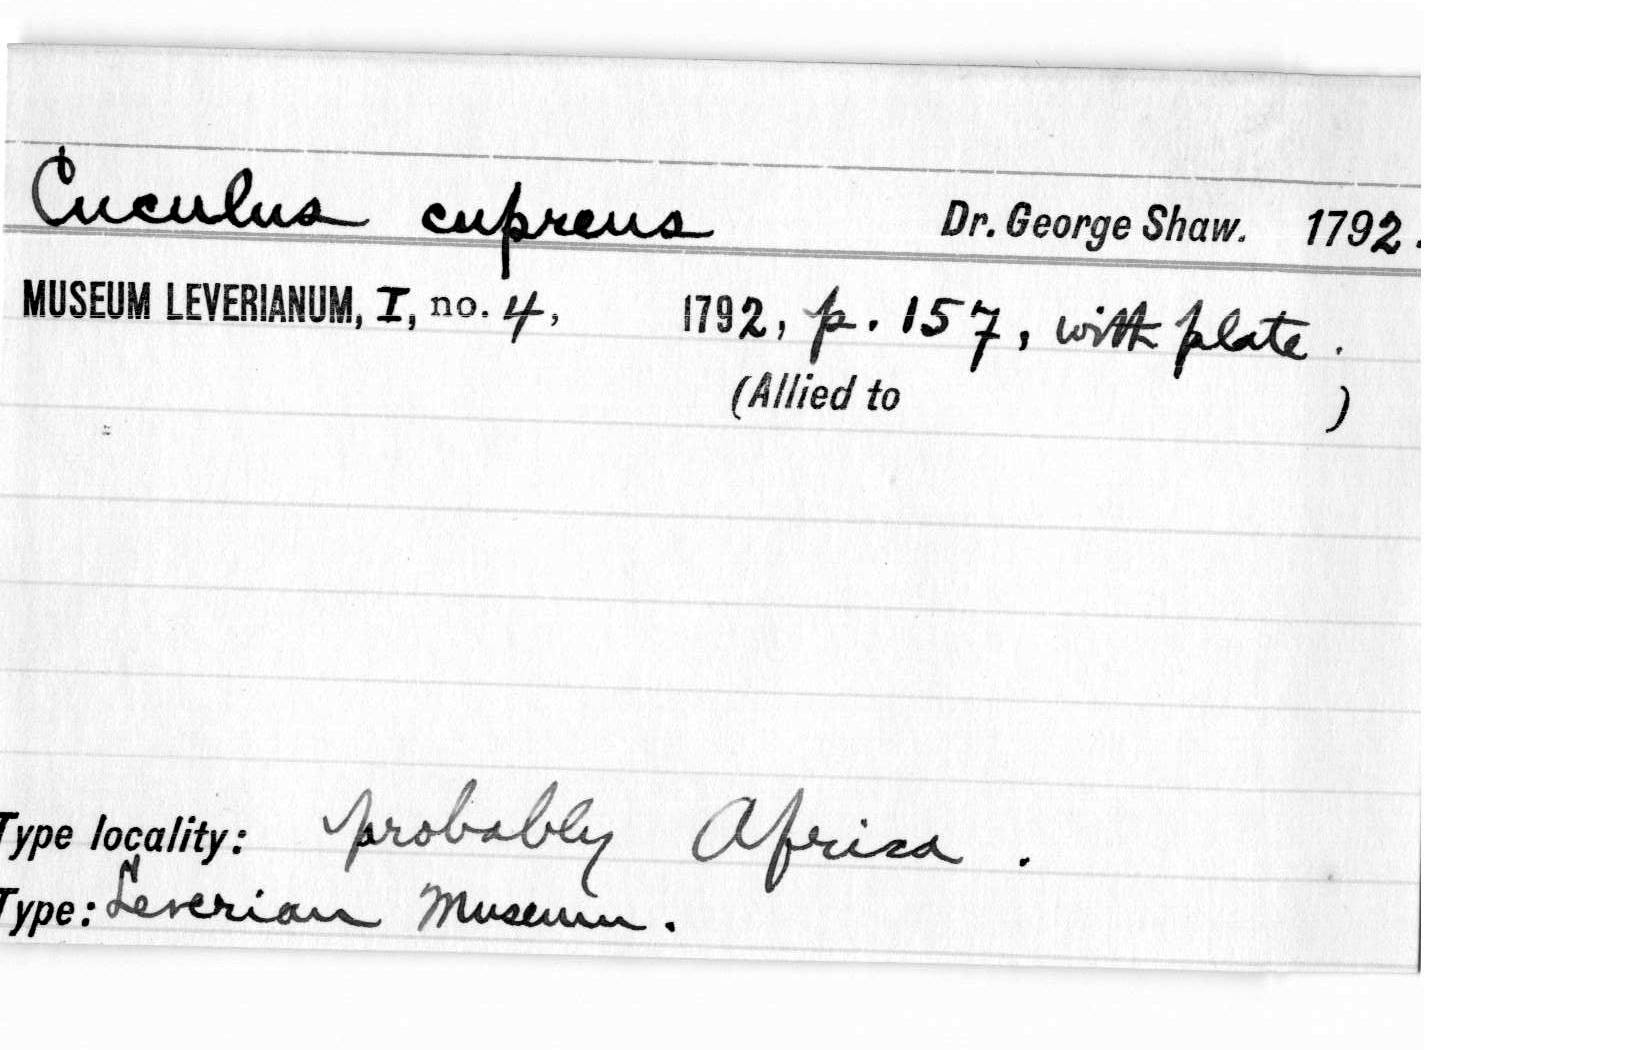 Cuculus cupreus Dr. George Shaw. 1792.
MUSEUM LEVERIANUM, I, no. 4, 1792, p. 157, with plate.
(Allied to )
Type locality: probably Africa.
Type: Leverian Museum.